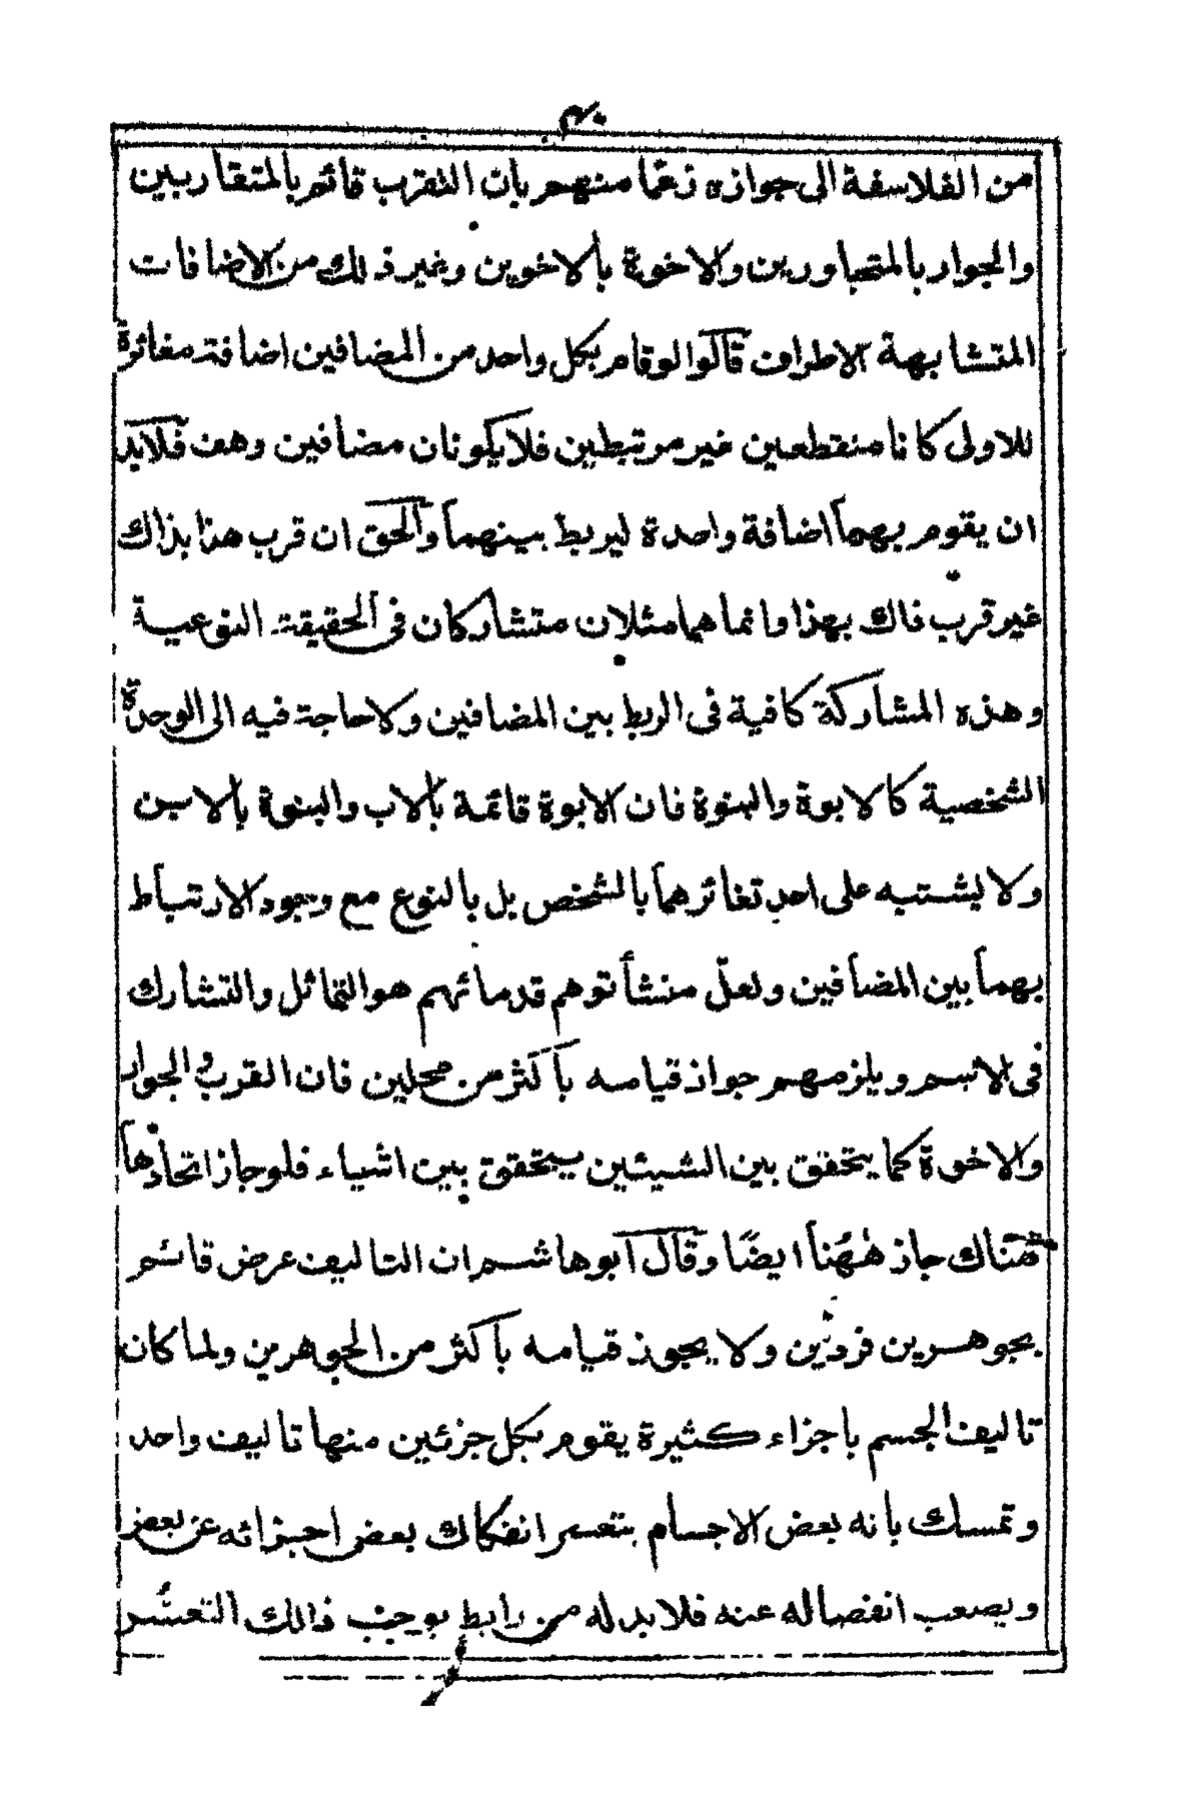 من الفلاسفة الى جوازه زعما منهم بان التقرب قائم بالمتقاربين
والجوار بالمتجاورين والاخوة بالاخوين وغير ذلك من الاضافات
المتشابهة الاطراف قالوا لو قام بكل واحد من المضافين اضافة مغائرة
للاولى كانا منقطعين غير مرتبطين فلا يكونان مضافين وهف فلابد
ان يقوم بهما اضافة واحدة ليربط بينهما والحق ان قرب هذا بذاك
غير قرب ذاك بهذا وانما هما مثلان متشاركان في الحقيقة النوعية
وهذه المشاركة كافية في الربط بين المضافين ولا حاجة فيه الى الوحدة
الشخصية كالابوة والبنوة فان الابوة قائمة بالاب والبنوة بالابن
ولا يشتبه على احد تغائرهما بالشخص بل بالنوع مع وجود الارتباط
بهما بين المضافين ولعل منشأ توهم قدمائهم هو التماثل والتشارك
في الاسم ويلزمهم جواز قيامه باكثر من محلين فان القرب والجوار
والاخوة كما يتحقق بين الشيئين يتحقق بين اشياء فلو جاز اتحادها
هناك جاز ههنا ايضا وقال ابو هاشم ان التاليف عرض قائم
بجوهرين فردين ولا يجوز قيامه باكثر من الجوهرين ولما كان
تاليف الجسم باجزاء كثيرة يقوم بكل جزئين منها تاليف واحد
وتمسك بانه بعض الاجسام يتعسر انفكاك بعض اجزائه عن بعض
ويصعب انفصاله عنه فلا بد له من رابط يوجب ذالك التعسر